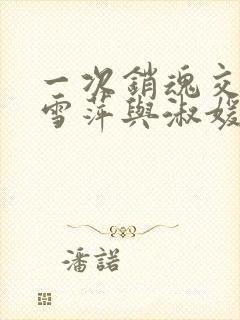 一次銷魂交
雪萍與淑媛
潘諾